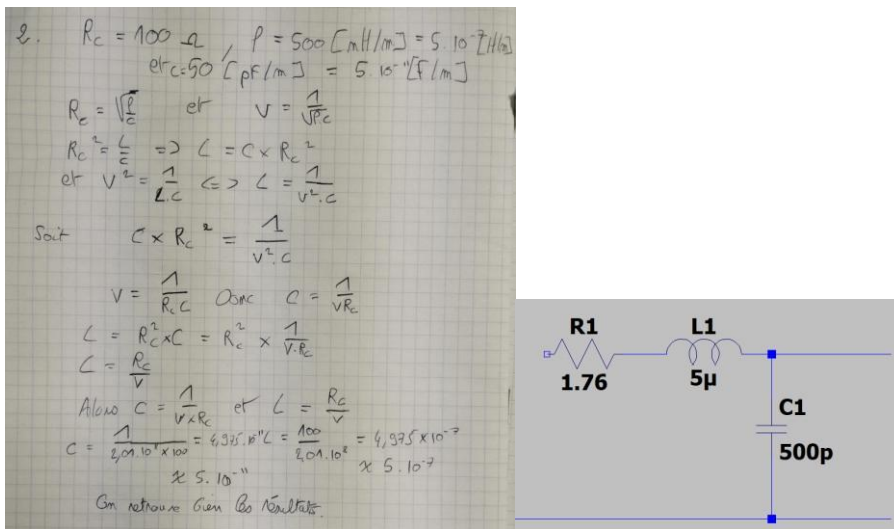 2. Rc = 100 Ω , l = 500 [mH/m] = 5.10⁻⁷ [H/m]
et c=50 [pF/m] = 5.10⁻¹¹ [F/m]
Rc = √(l/c) et V = 1/√(l.c)
Rc² = L/C => L = C x Rc²
et V² = 1/(L.C) <=> L = 1/(V².C)
Soit C x Rc² = 1/(V².C)
V = 1/(Rc C) Donc C = 1/(VRc)
L = Rc² x C = Rc² x 1/(V.Rc)
L = Rc/V
Alors C = 1/(V x Rc) et L = Rc/V
C = 1/(2,01.10⁸ x 100) = 4,975.10⁻¹¹ L = 100/(2,01.10⁸) = 4,975 x 10⁻⁷
≈ 5.10⁻¹¹ ≈ 5.10⁻⁷
On retrouve bien les résultats.
R1
1.76
L1
5µ
C1
500p